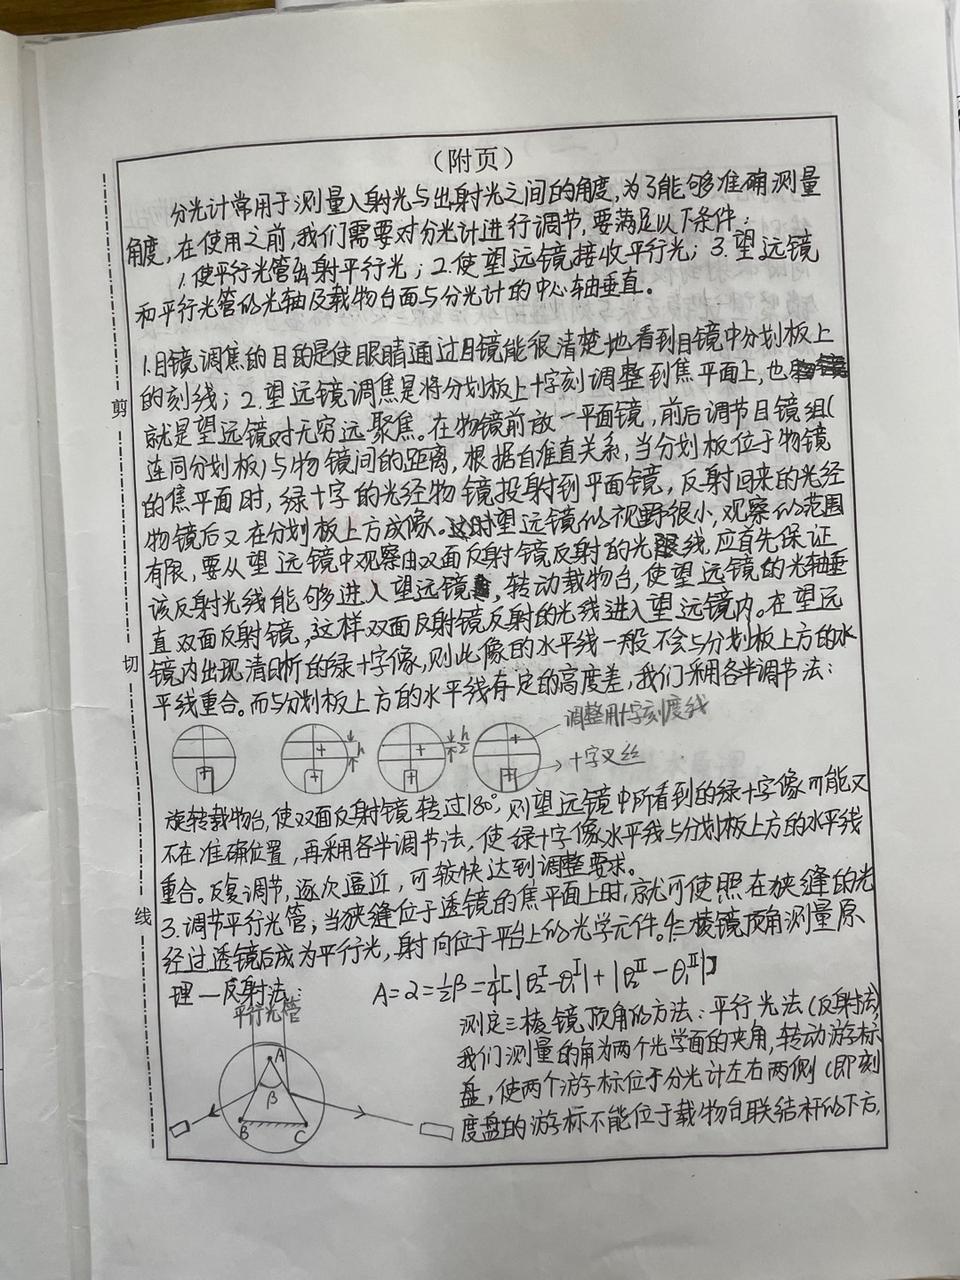 （附页）
分光计常用于测量入射光与出射光之间的角度,为了能够准确测量
角度,在使用之前,我们需要对分光计进行调节,要满足以下条件:
1.使平行光管出射平行光；2.使望远镜接收平行光；3.望远镜
和平行光管的光轴及载物台面与分光计的中心轴垂直。
1.目镜调焦的目的是使眼睛通过目镜能很清楚地看到目镜中分划板上
的刻线；2.望远镜调焦是将分划板上十字刻调整到焦平面上,也
就是望远镜对无穷远聚焦。在物镜前放一平面镜,前后调节目镜组(
连同分划板)与物镜间的距离,根据自准直关系,当分划板位于物镜
的焦平面时,绿十字的光经物镜投射到平面镜,反射回来的光经
物镜后又在分划板上方成像。这时望远镜的视野很小,观察的范围
有限,要从望远镜中观察由双面反射镜反射的光线,应首先保证
该反射光线能够进入望远镜,转动载物台,使望远镜的光轴垂
直双面反射镜,这样双面反射镜反射的光线进入望远镜内。在望远
镜内出现清晰的绿十字像,则此像的水平线一般不会与分划板上方的水
平线重合。而与分划板上方的水平线有定的高度差,我们采用各半调节法:
调整用十字刻度线
h
h/2
十字叉丝
旋转载物台,使双面反射镜转过180°,则望远镜中所看到的绿十字像可能又
不在准确位置,再采用各半调节法,使绿十字像水平线与分划板上方的水平线
重合。反复调节,逐次逼近,可较快达到调整要求。
3.调节平行光管；当狭缝位于透镜的焦平面上时,就可使照在狭缝的光
经过透镜后成为平行光,射向位于平台上的光学元件。4.三棱镜顶角测量原
理—反射法:
A=2=½β=¼[|θ₂ᴵ-θ₁ᴵ|+|θ₂ᴵᴵ-θ₁ᴵᴵ|]
平行光管
A
β
B
C
测定三棱镜顶角的方法:平行光法(反射法)
我们测量的角为两个光学面的夹角,转动游标
盘,使两个游标位于分光计左右两侧(即刻
度盘的游标不能位于载物台联结杆的下方,
剪
切
线